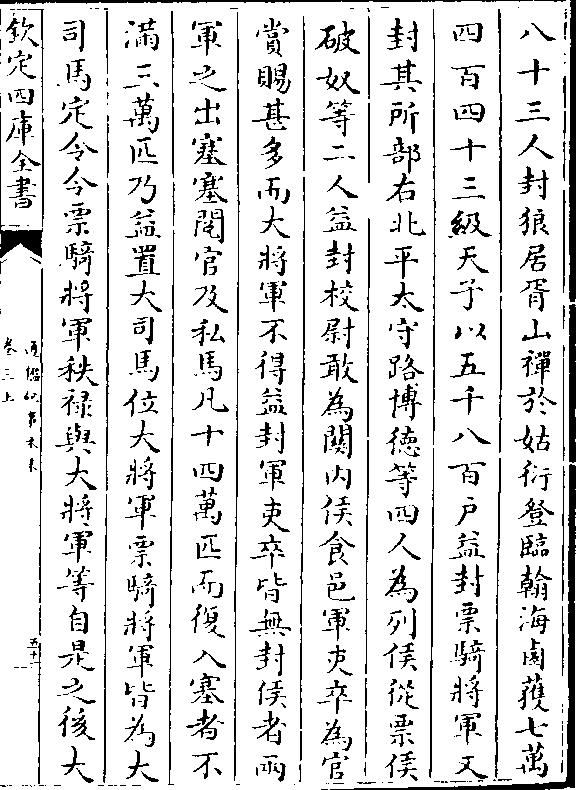 八十三人封狼居胥山禪於姑衍登臨翰海鹵獲七萬
四百四十三級天子以五千八百户益封票騎將軍又
封其所部右北平太守路博德等四人為列侯從票侯
破奴等二人益封校尉敢為關内侯食邑軍吏卒為官
賞賜甚多而大將軍不得益封軍吏卒皆無封侯者兩
軍之出塞塞閲官及私馬凡十四萬匹而復入塞者不
滿三萬匹乃益置大司馬位大將軍票騎將軍皆為大
司馬定令令票騎將軍秩禄與大將軍等自是之後大
欽定四庫全書
通鑑紀事本末
卷三上
五十一